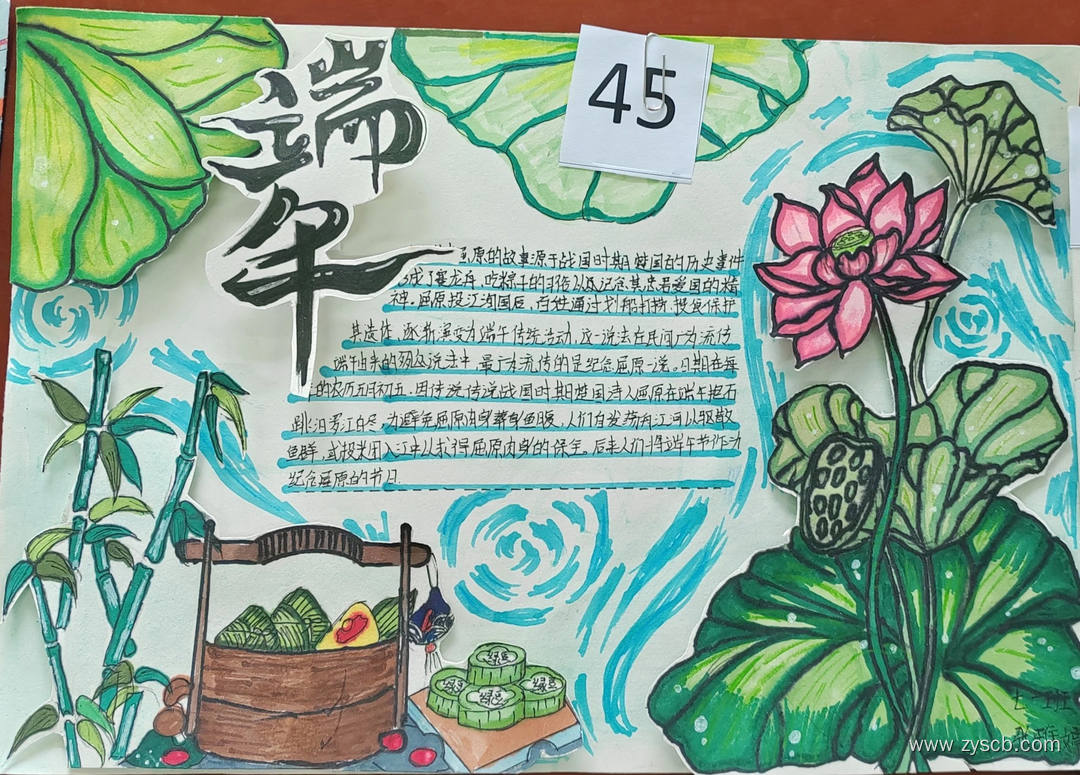 端午
45
屈原的故事源于战国时期楚国的历史事件
了赛龙舟、吃粽子的习俗以及纪念其忠君爱国的精
神。屈原投江殉国后，百姓通过划船打捞、投食保护
其遗体，逐渐演变为端午传统活动，这一说法在民间广为流传
端午由来的众多说法中，最广为流传的是纪念屈原一说。日期在每
的农历五月初五。因传说传说战国时期楚国诗人屈原在端午抱石
跳汨罗江自尽，为避免屈原肉身葬身鱼腹，人们自发荡舟江河以驱散
鱼群，或投米团入江中以求得屈原肉身的保全。后来人们将端午节作为
纪念屈原的节日
绿豆
绿豆
绿豆
绿豆
七一班
www.zyscb.com